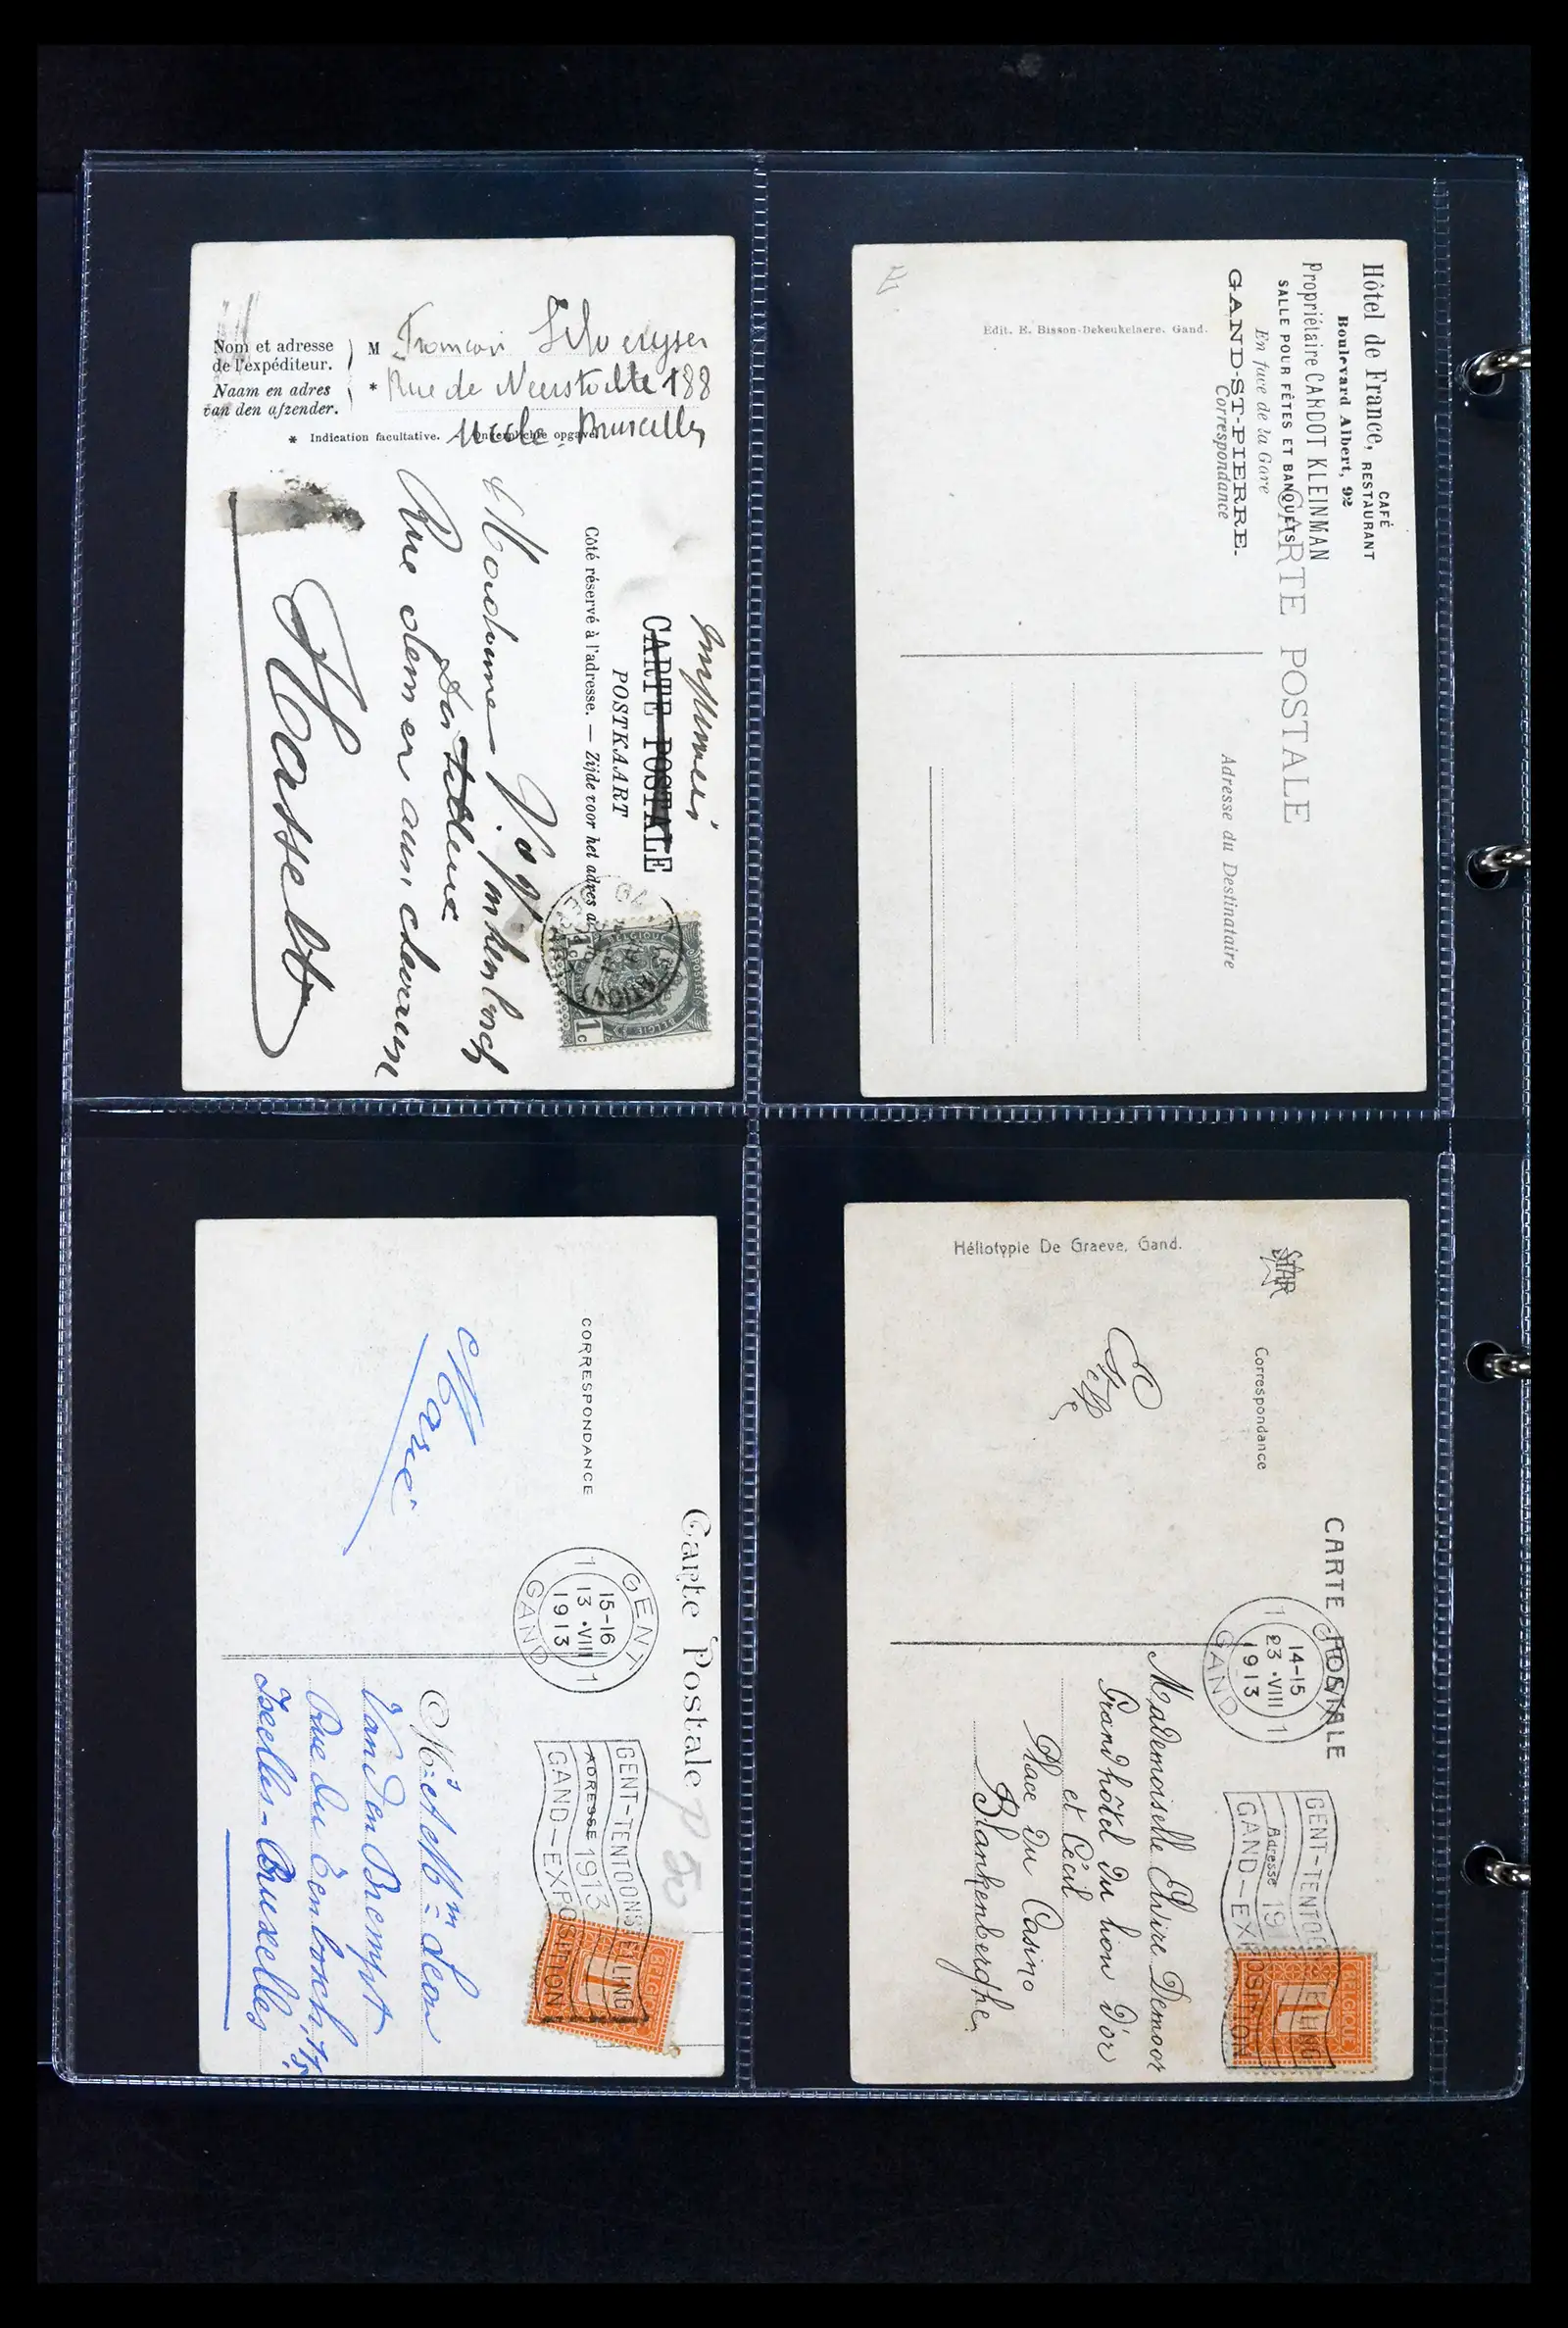 Nom et adresse
de l'expéditeur.
Naam en adres
van den afzender.
M
* Rue de Neerstalle 188
Uccle Bruxelles
* Indication facultative. — Onverplichte opgave.
Imprimé
CARTE POSTALE
POSTKAART
Côté réservé à l'adresse. — Zijde voor het adres
Madame
Hasselt
BELGIQUE
POSTES
BELGIE
1c 1c
Hôtel de France, CAFÉ
RESTAURANT
Boulevard Albert, 92
Propriétaire CARDOT KLEINMAN
SALLE POUR FÊTES ET BANQUETS
En face de la Gare
GAND-ST-PIERRE.
Correspondance
CARTE POSTALE
Adresse du Destinataire
Edit. E. Bisson-Dekeukelaere, Gand.
Carte Postale
CORRESPONDANCE
ADRESSE
1 GENT 1
15-16
13 ·VIII
1913
GAND
GENT-TENTOONSTELLING
1913
GAND-EXPOSITION
BELGIQUE
1
Mr et Mme Leon
Van den Brempt
Rue du
Ixelles - Bruxelles
STAR
Héliotypie De Graeve, Gand.
Correspondance
CARTE POSTALE
Adresse
1 GENT 1
14-15
23 ·VIII
1913
GAND
GENT-TENTOONSTELLING
19
GAND-EXPOSITION
BELGIQUE
1
Mademoiselle Elvire Demoor
Grand hôtel du Lion d'or
et Cécil
Place du Casino
Blankenberghe.